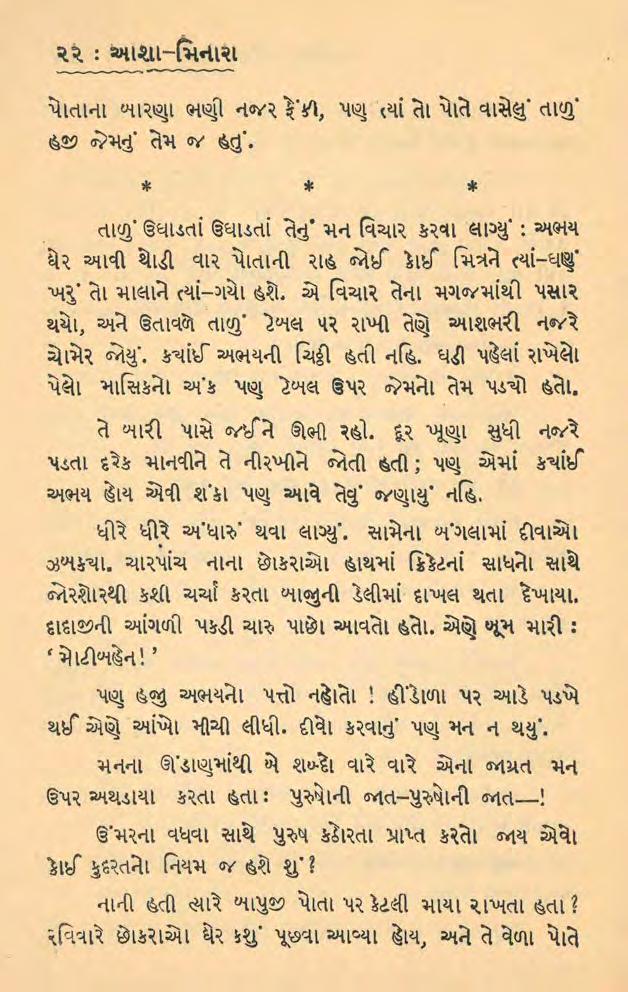 ૨૨ : આશા-મિનારા
પોતાના બારણા ભણી નજર ફેંકી, પણ ત્યાં તો પોતે વાસેલું તાળું
હજી જેમનું તેમ જ હતું.
* * *
તાળું ઉઘાડતાં ઉઘાડતાં તેનું મન વિચાર કરવા લાગ્યું : અભય
ઘેર આવી થોડી વાર પોતાની રાહ જોઈ કોઈ મિત્રને ત્યાં-ઘણું
ખરું તો માલાને ત્યાં-ગયો હશે. એ વિચાર તેના મગજમાંથી પસાર
થયો, અને ઉતાવળે તાળું ટેબલ પર રાખી તેણે આશભરી નજરે
ચોમેર જોયું. કયાંઈ અભયની ચિઠ્ઠી હતી નહિ. ઘડી પહેલાં રાખેલો
પેલો માસિકનો અંક પણ ટેબલ ઉપર જેમનો તેમ પડયો હતો.
તે બારી પાસે જઈને ઊભી રહી. દૂર ખૂણા સુધી નજરે
પડતા દરેક માનવીને તે નીરખીને જોતી હતી; પણ એમાં કયાંઈ
અભય હોય એવી શંકા પણ આવે તેવું જણાયું નહિ.
ધીરે ધીરે અંધારું થવા લાગ્યું. સામેના બંગલામાં દીવાઓ
ઝબકયા. ચારપાંચ નાના છોકરાઓ હાથમાં ક્રિકેટનાં સાધનો સાથે
જોરશોરથી કશી ચર્ચા કરતા બાજુની ડેલીમાં દાખલ થતા દેખાયા.
દાદાજીની આંગળી પકડી ચારુ પાછો આવતો હતો. એણે બૂમ મારી :
‘ મોટીબહેન! ’
પણ હજુ અભયનો પત્તો નહોતો ! હીંડોળા પર આડે પડખે
થઈ એણે આંખો મીચી લીધી. દીવો કરવાનું પણ મન ન થયું.
મનના ઊંડાણમાંથી બે શબ્દો વારે વારે એના જાગ્રત મન
ઉપર અથડાયા કરતા હતા : પુરુષોની જાત-પુરુષોની જાત—!
ઉંમરના વધવા સાથે પુરુષ કઠોરતા પ્રાપ્ત કરતો જાય એવો
કોઈ કુદરતનો નિયમ જ હશે શું ?
નાની હતી ત્યારે બાપુજી પોતા પર કેટલી માયા રાખતા હતા ?
રવિવારે છોકરાઓ ઘેર કશું પૂછવા આવ્યા હોય, અને તે વેળા પોતે